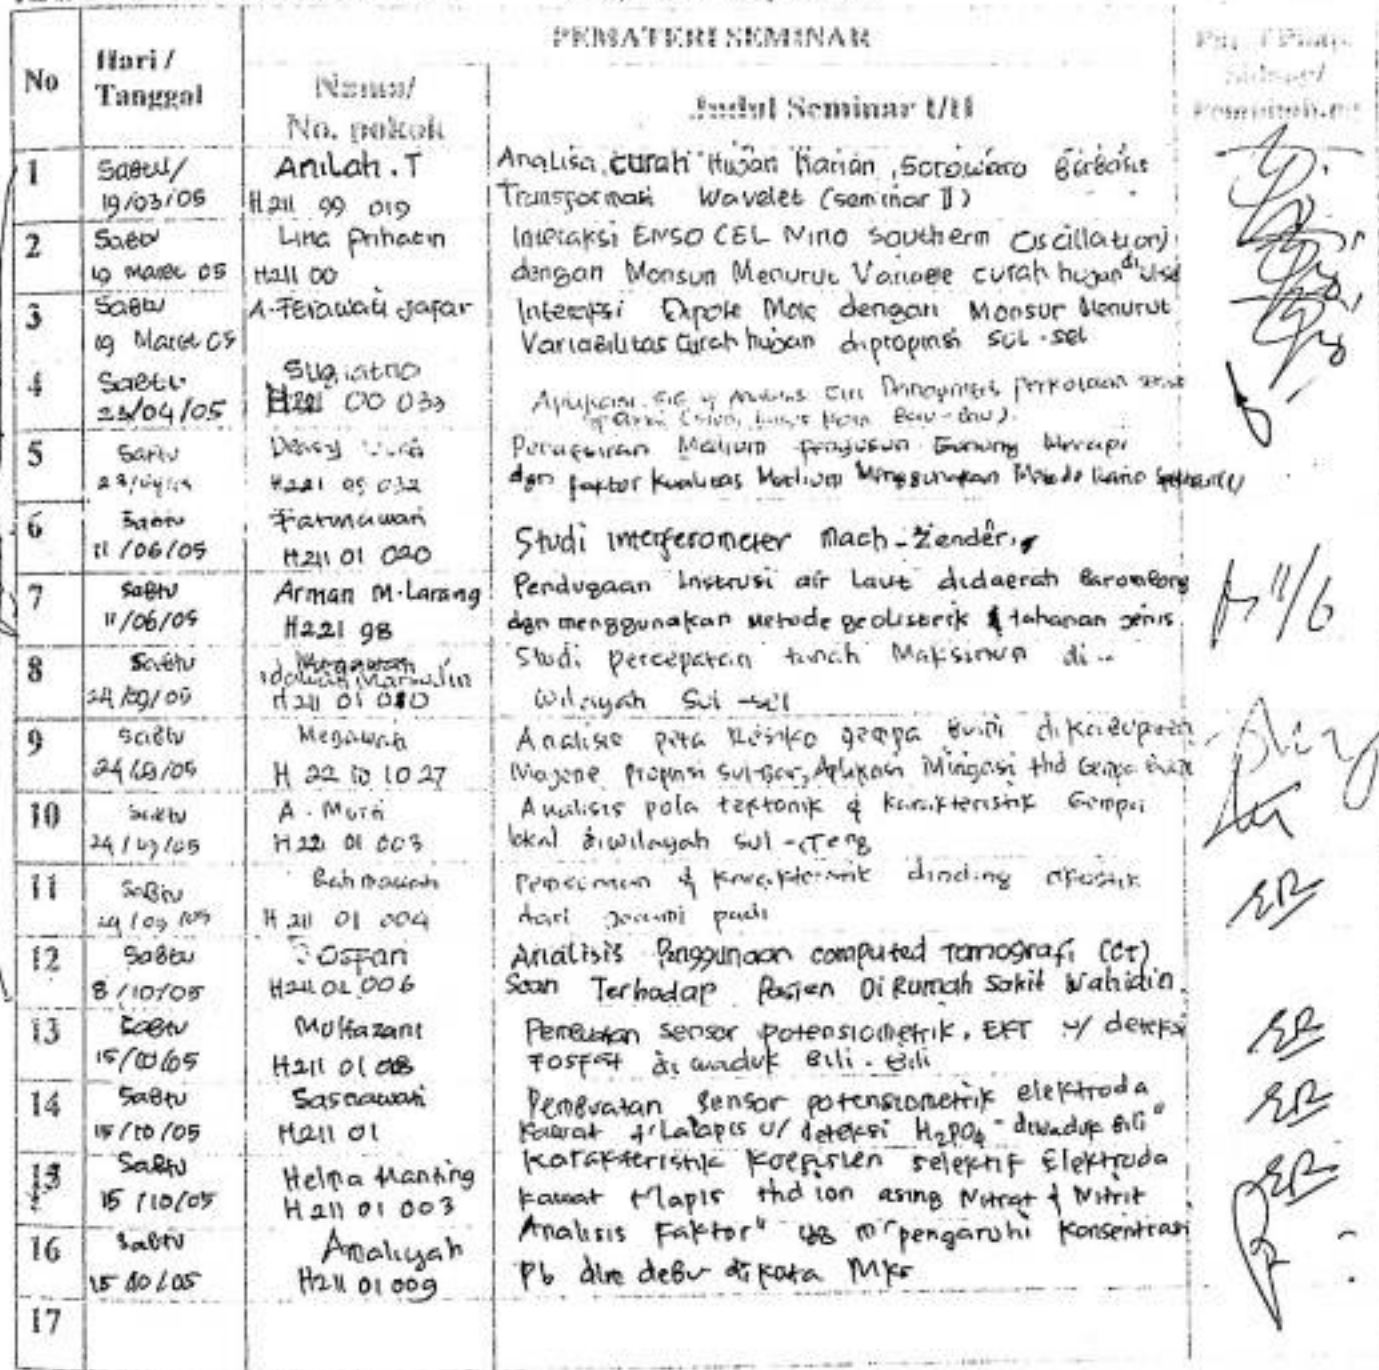 PEMATERI SEMINAR
No
Hari /
Tanggal
Nama/
No. pokok
Judul Seminar I/II
1
Sabtu/
19/03/05
Anilah. T
H211 99 019
Analisa curah Hujan Harian, Sorowaro Berbasis
Transformasi Wavelet (seminar II)
2
Sabtu
19 Maret 05
Lina Prihatin
H211 00
Interaksi ENSO CEL Nino Southern Oscillation)
dengan Monsun Menurut Variabe curah hujan di
3
Sabtu
19 Maret 05
A. Ferawati Jafar
Interaksi Dipole Mode dengan Monsur Menurut
Variabilitas Curah hujan dipropinsi Sul-sel
4
Sabtu
23/04/05
Sugiatno
H221 00 033
Aplikasi
5
Sabtu
Densy
H221 05 032
Medium Penyusun Gunung Merapi
dgn faktor kualitas Medium Menggunakan Metode
6
Sabtu
11/06/05
Fatmawati
H211 01 020
Studi interferometer Mach-Zender
7
Sabtu
11/06/05
Arman M. Larang
H221 98
Pendugaan Instrusi air Laut didaerah Barombong
dgn menggunakan Metode geolistrik tahanan jenis
8
Sabtu
24/09/05
H211 01 010
Studi percepatan tanah Maksimum di
Wilayah Sul-sel
9
Sabtu
24/09/05
Megawati
H 22 10 10 27
Analisis peta Resiko gempa Bumi dikabupaten
Majene propinsi Sul-Bar, Aplikasi Mitigasi thd Gempa
10
Sabtu
24/09/05
A. Muta
H 221 01 003
Analisis pola tektonik & karakteristik Gempa
lokal diwilayah Sul-Teng
11
Sabtu
24/09/05
Rahmawati
H 211 01 004
& karakteristik dinding akustik
dari jerami padi
12
Sabtu
8/10/05
Osfan
H211 01 006
Analisis Penggunaan computed Tomografi (CT)
Scan Terhadap Pasien Di Rumah Sakit Wahidin
13
Sabtu
15/10/05
Multazam
H211 01 008
Pembuatan sensor potensiometrik, EKT u/ deteksi
Fosfat di waduk Bili-Bili
14
Sabtu
15/10/05
Sasnawati
H211 01
Pembuatan Sensor potensiometrik elektroda
Kawat t'Lapis u/ deteksi H₂PO₄⁻ diwaduk Bili"
15
Sabtu
15/10/05
Helna Manting
H 211 01 003
Karakteristik Koefisien selektif Elektroda
Kawat t'lapis thd ion asing Nitrat & Nitrit
16
Sabtu
15/10/05
Amaliyah
H211 01 009
Analisis Faktor" yg m'pengaruhi Konsentrasi
Pb dlm debu di kota Mks
17
11/6